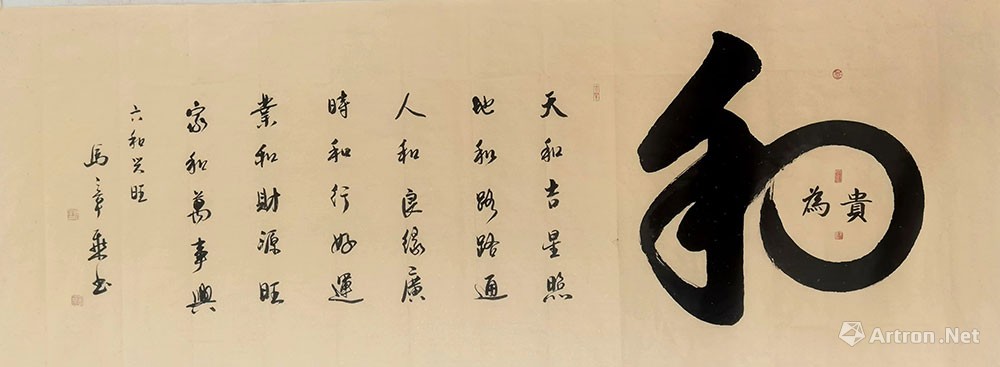 和
貴為
天和吉星照
地和路路通
人和良緣廣
時和行好運
業和財源旺
家和萬事興
六和兴旺
馬章乘书
Artron.Net